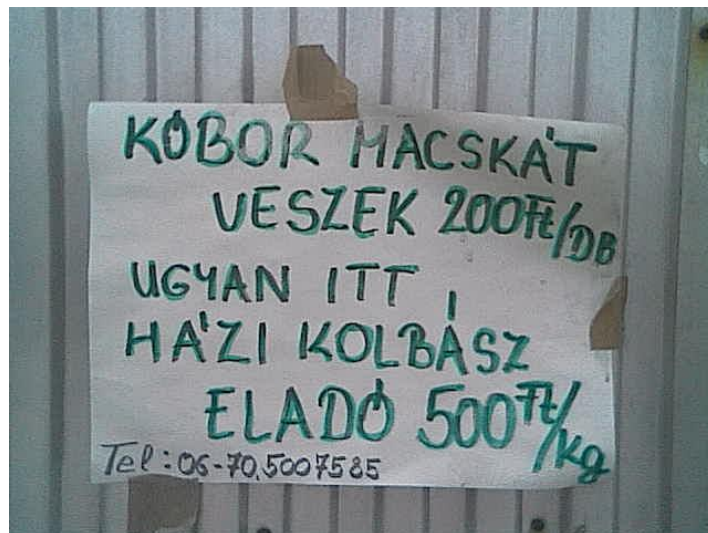 KÓBOR MACSKÁT
VESZEK 200Ft/DB
UGYAN ITT
HÁZI KOLBÁSZ
ELADÓ 500Ft/kg
Tel: 06-70.5007585